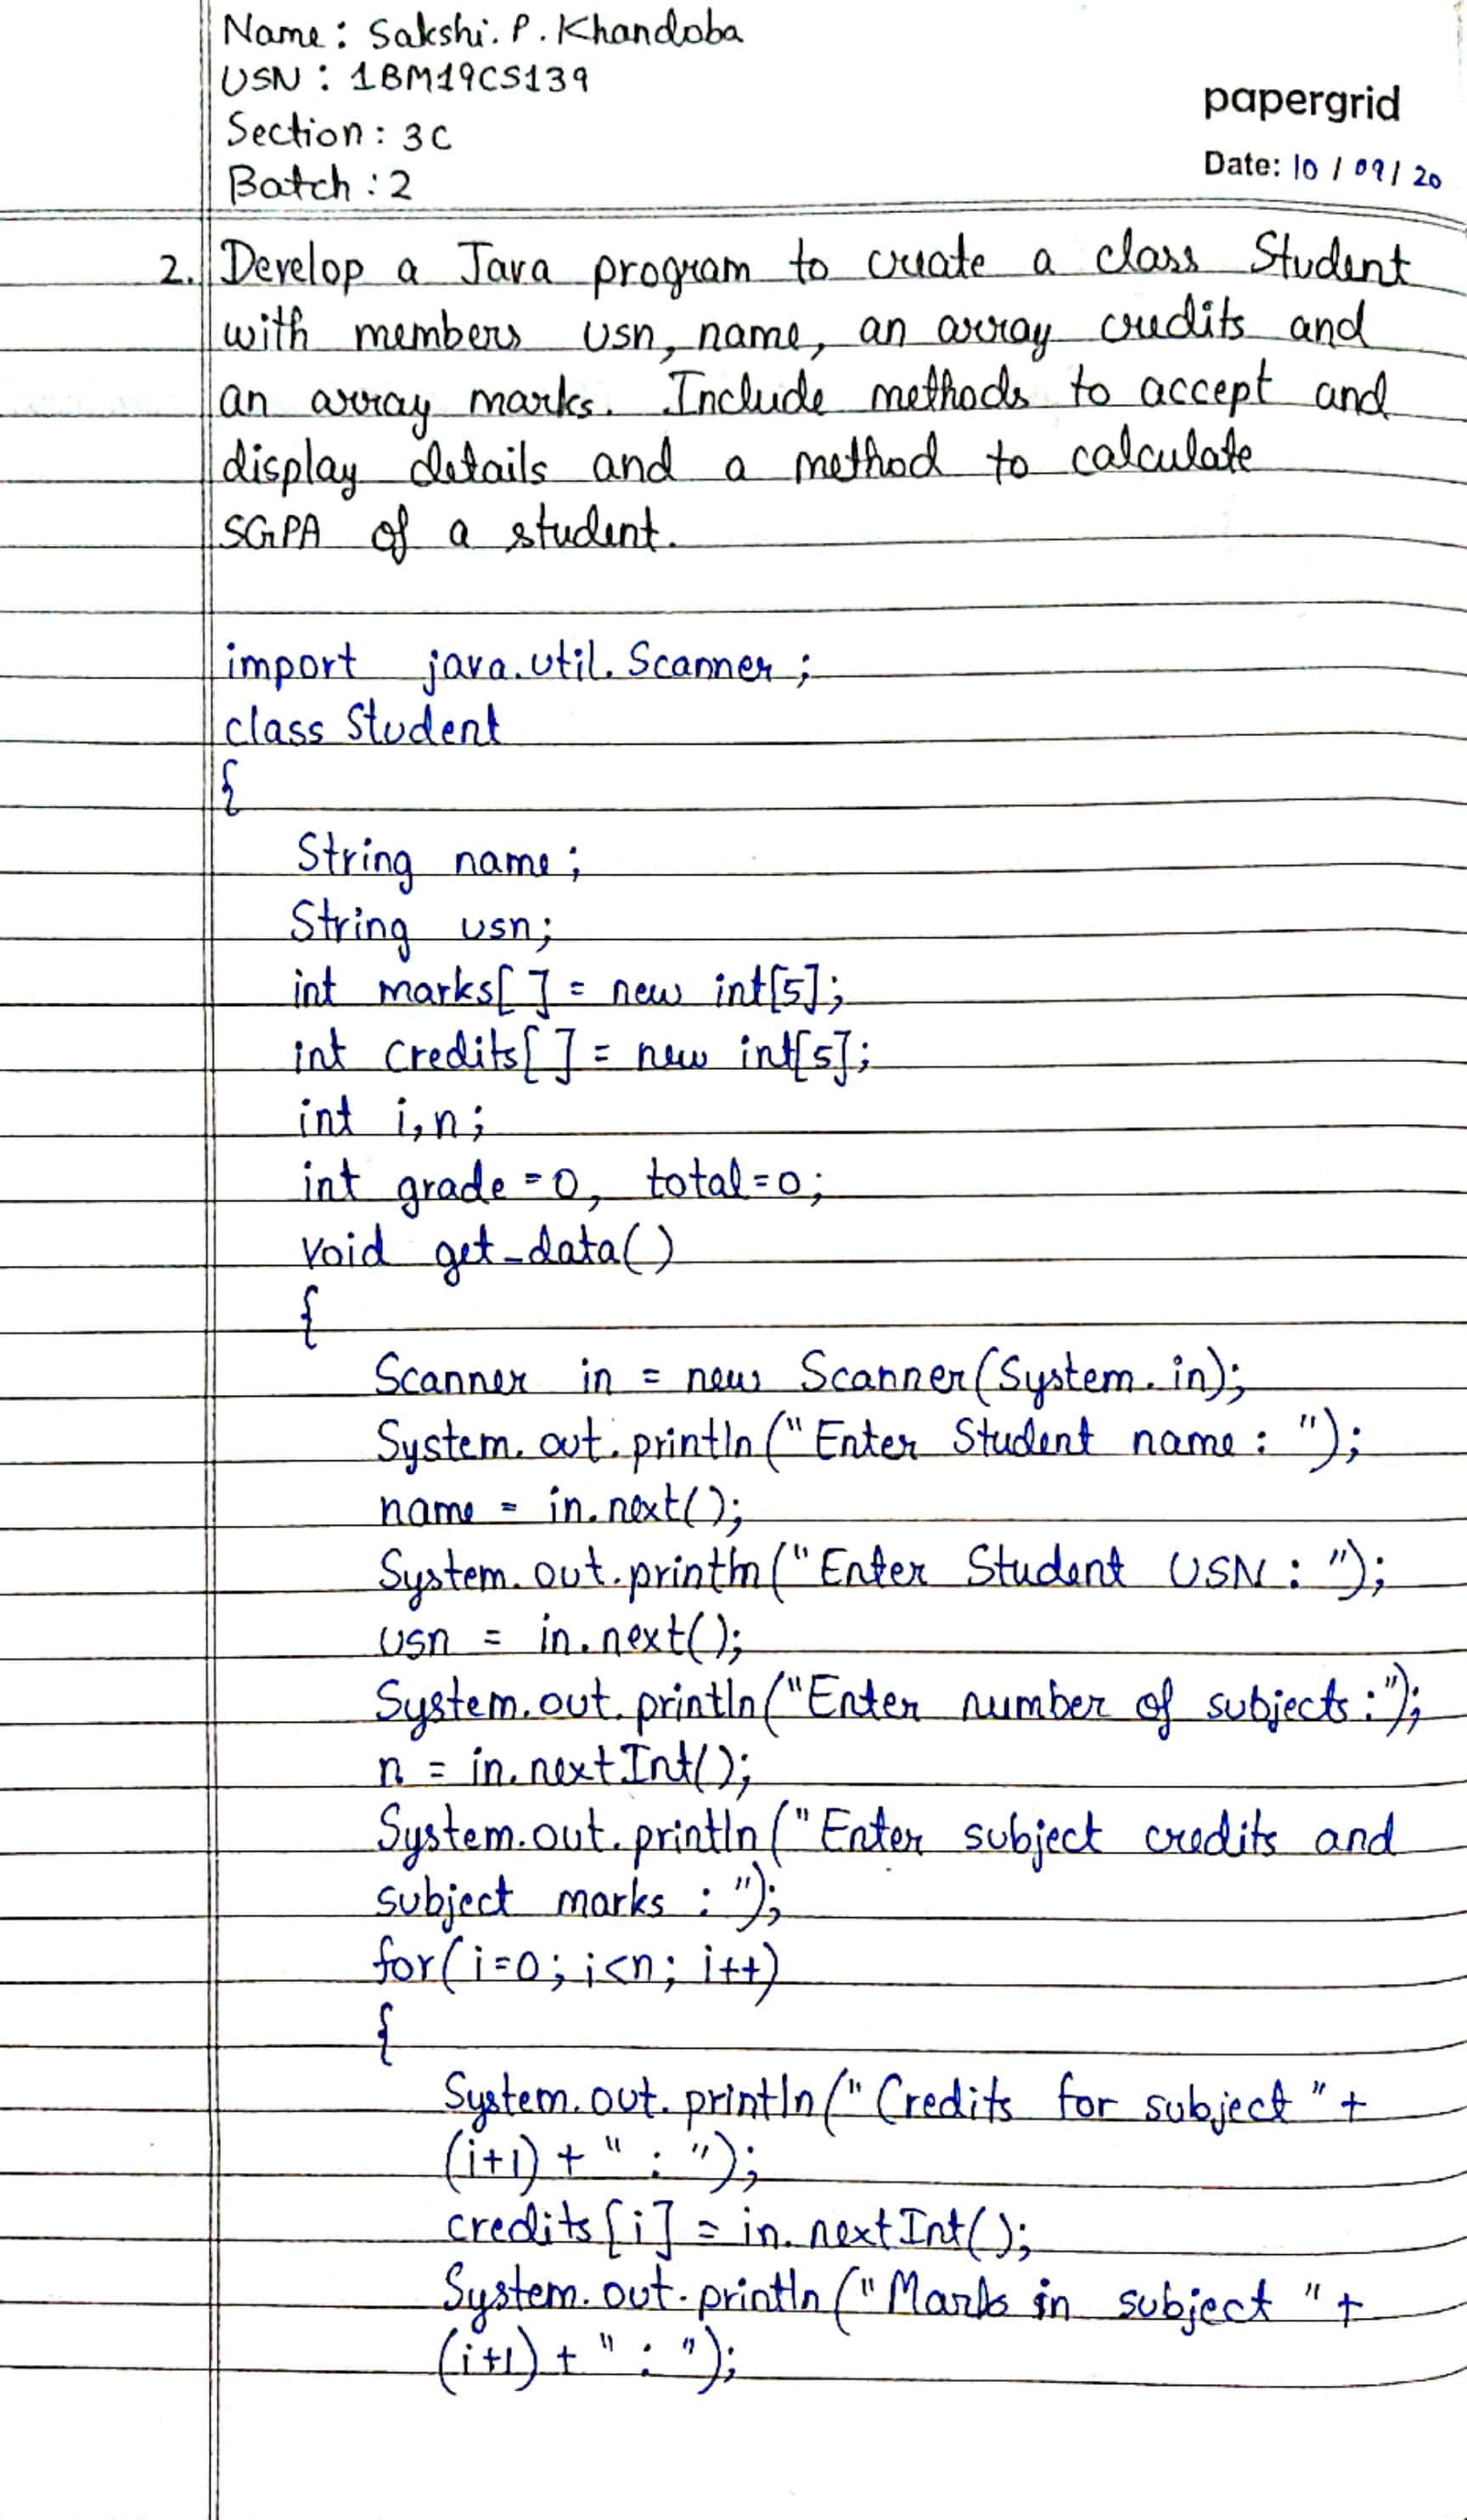 Name : Sakshi. P. Khandoba
USN : 1BM19CS139
Section : 3C
Batch : 2
papergrid
Date: 10 / 09 / 20
2. Develop a Java program to create a class Student
with members usn, name, an array credits and
an array marks. Include methods to accept and
display details and a method to calculate
SGPA of a student.
import java.util.Scanner;
class Student
{
String name;
String usn;
int marks[ ] = new int[5];
int credits[ ] = new int[5];
int i,n;
int grade=0, total=0;
void get_data()
{
Scanner in = new Scanner(System.in);
System.out.println("Enter Student name : ");
name = in.next();
System.out.println("Enter Student USN : ");
usn = in.next();
System.out.println("Enter number of subjects:");
n = in.nextInt();
System.out.println("Enter subject credits and
subject marks : ");
for(i=0; i<n; i++)
{
System.out.println("Credits for subject "+
(i+1) + " : ");
credits[i] = in.nextInt();
System.out.println("Marks in subject "+
(i+1) + " : ");